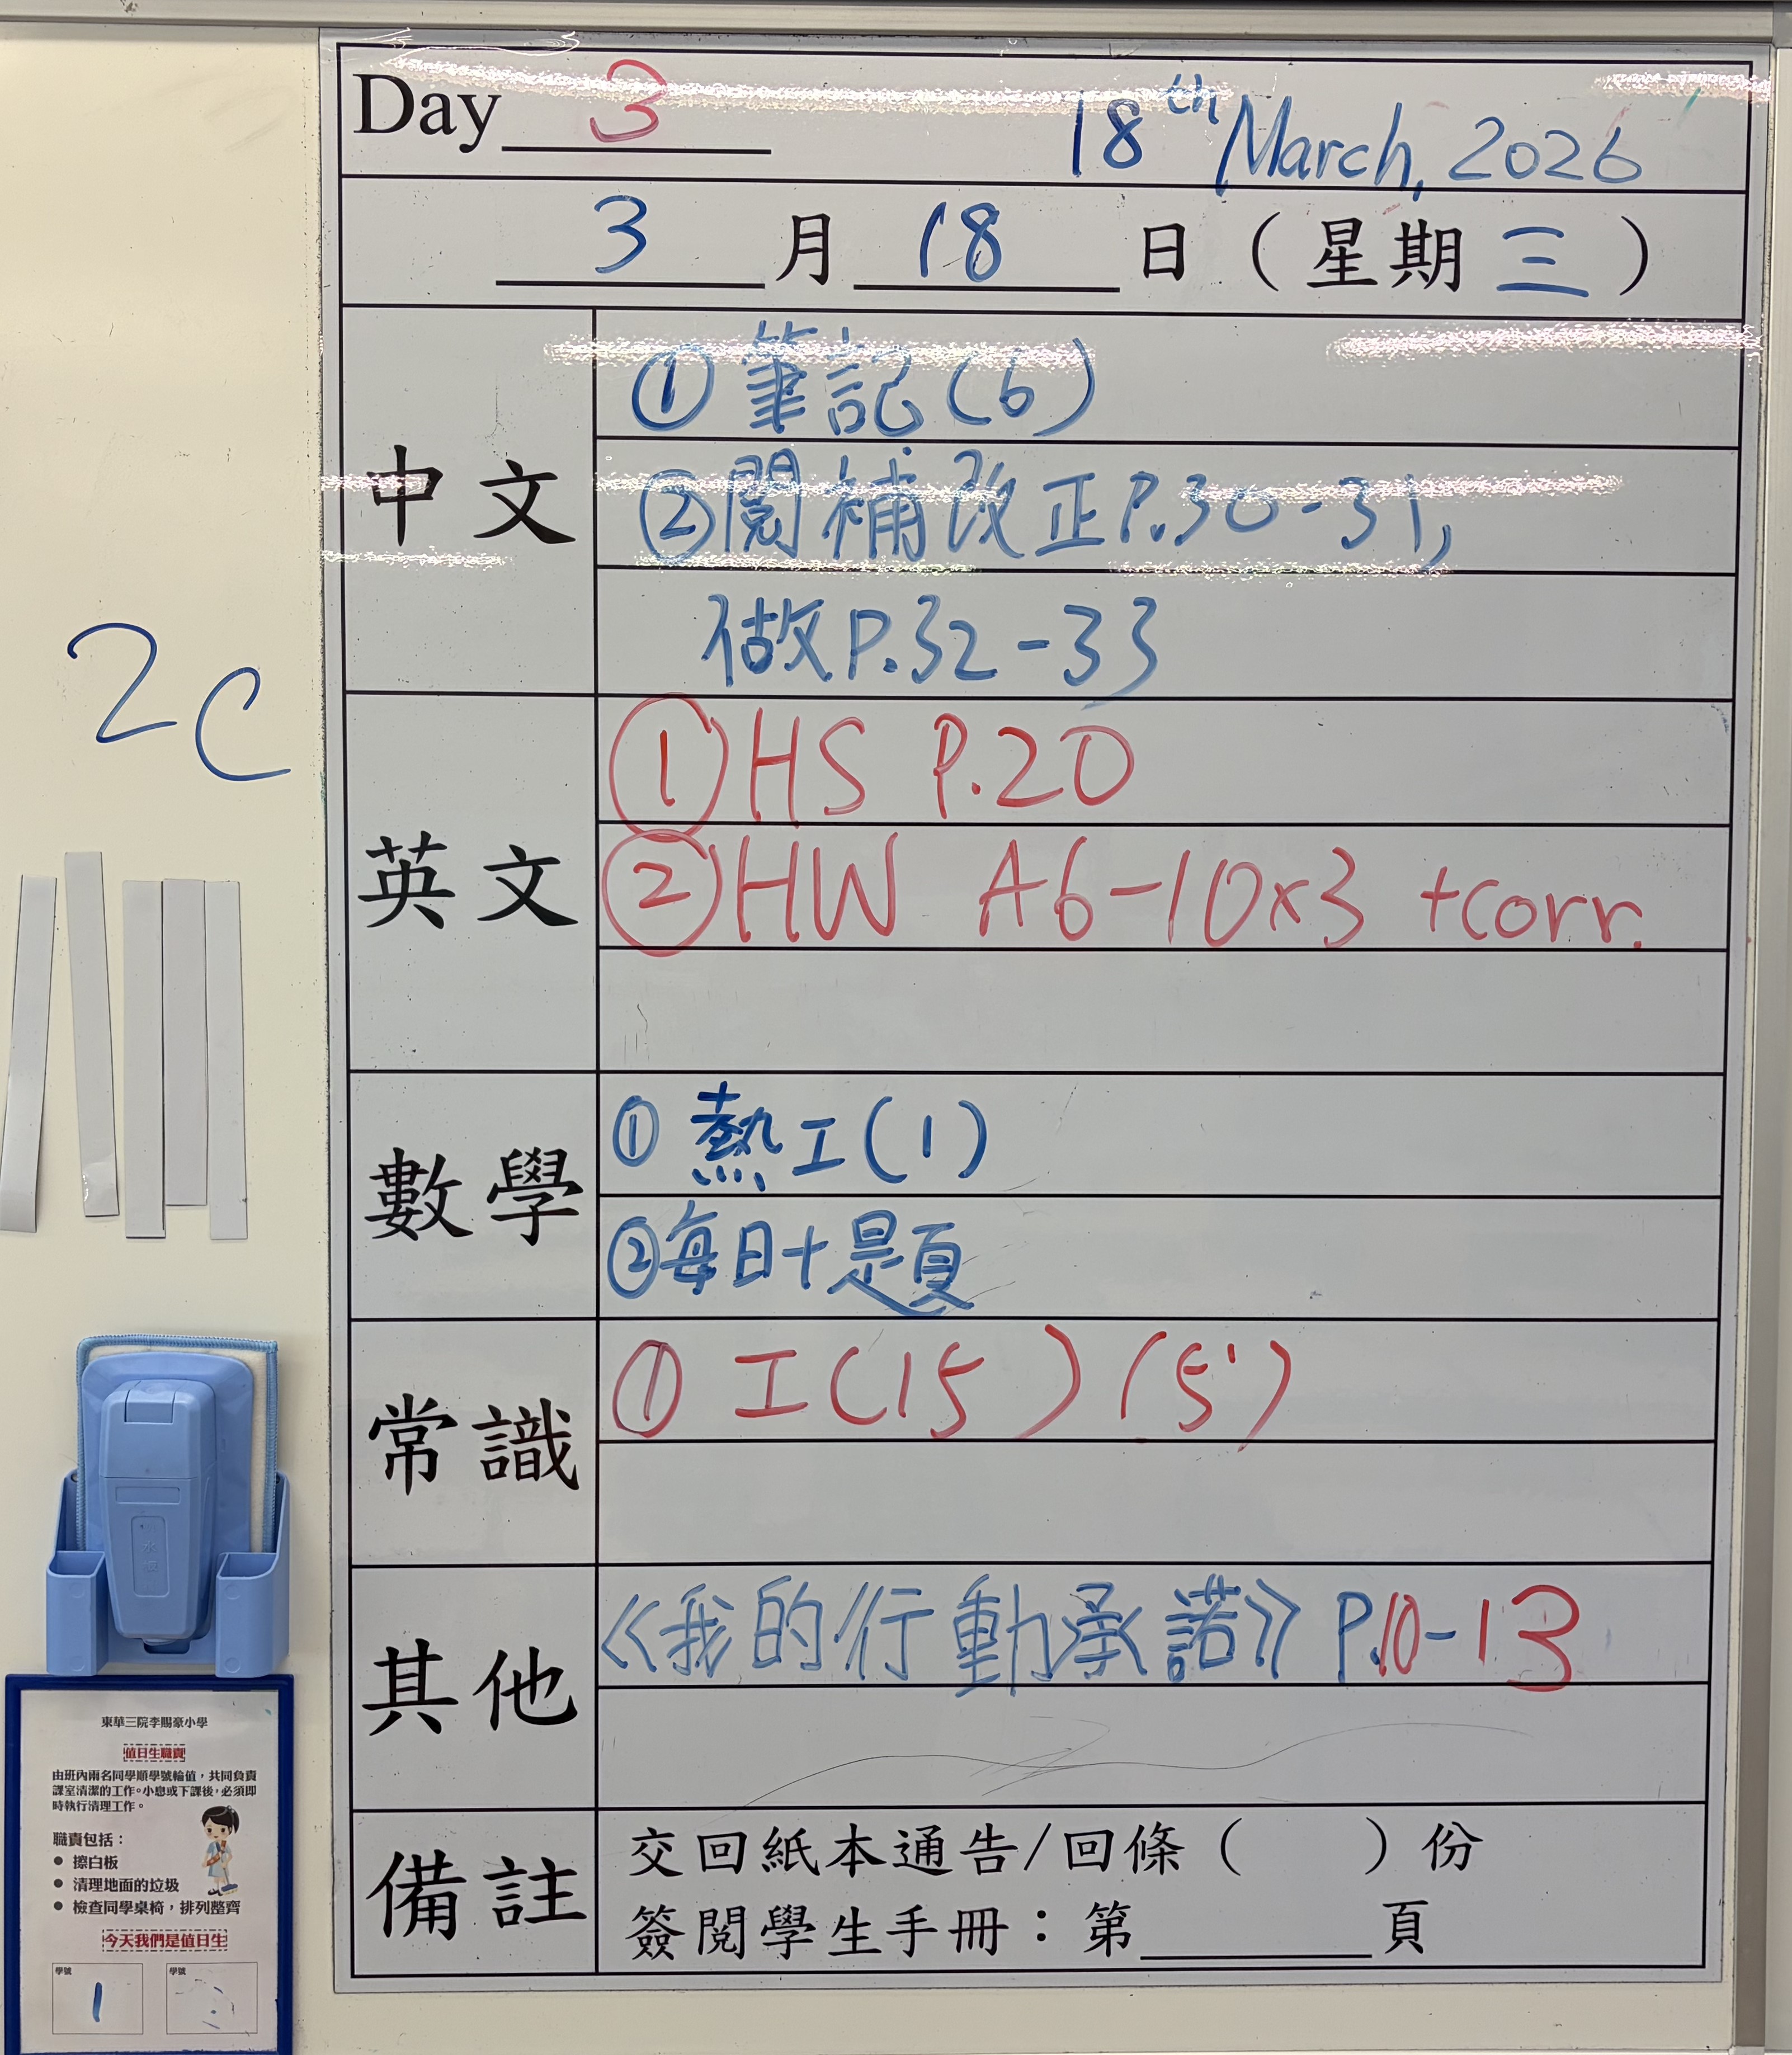 Day 3
18th March, 2026
3 月 18 日 (星期三)
中文
① 筆記(6)
② 閱補改正P.30-31,
做P.32-33
英文
① HS P.20
② HW A6-10x3 +corr.
數學
① 熱工(1)
② 每日十題
常識
① 工(15) (5')
其他
《我的行動承諾》 P.10-13
備註
交回紙本通告/回條 ( ) 份
簽閱學生手冊：第______頁
2C
東華三院李賜豪小學
值日生職責
由班內兩名同學順學號輪值，共同負責
課室清潔的工作。小息或下課後，必須即
時執行清理工作。
職責包括：
● 擦白板
● 清理地面的垃圾
● 檢查同學桌椅，排列整齊
今天我們是值日生
學號 學號
1